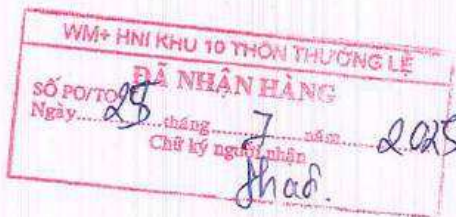 WM+ HNI KHU 10 THÔN THƯỢNG LỆ
ĐÃ NHẬN HÀNG
SỐ PO/TO
Ngày 25 tháng 7 năm 2025
Chữ ký người nhận